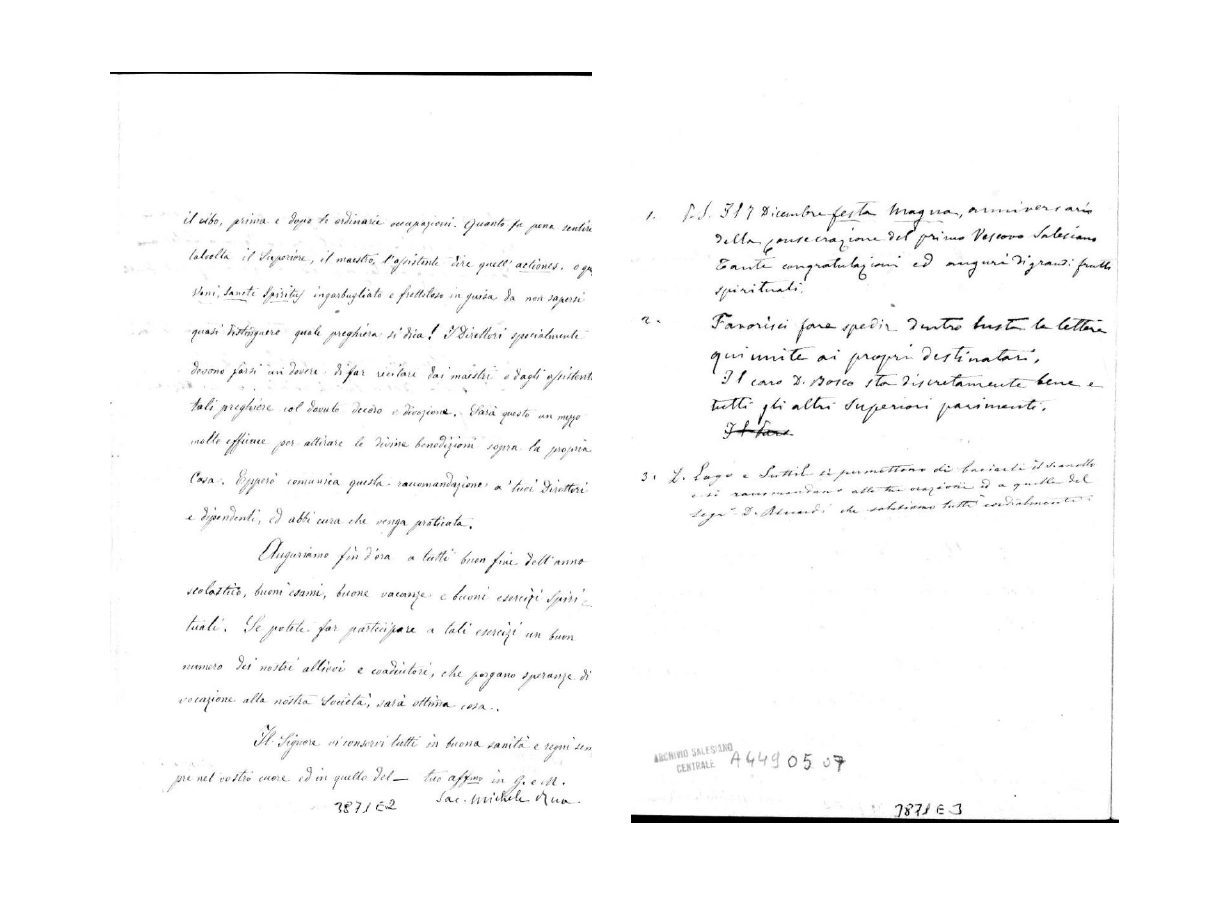 il cibo, prima e dopo le ordinarie occupazioni. Quanto fa pena sentire
talvolta il Superiore, il maestro, l'assistente dire quell'actiones. o qu
Veni, Sancte Spiritus ingarbugliato e frettoloso in guisa da non sapersi
quasi distinguere quale preghiera si dica! I Direttori specialmente
devono farsi un dovere di far recitare dai maestri o dagli assistenti
tali preghiere col dovuto decoro e divozione. Sarà questo un mezzo
molto efficace per attirare le divine benedizioni sopra la propria
Casa. Epperò comunica questa raccomandazione a' tuoi Direttori
e dipendenti, ed abbi cura che venga praticata.
Auguriamo fin d'ora a tutti buon fine dell'anno
scolastico, buoni esami, buone vacanze e buoni esercizi spiri-
tuali. Se potete far partecipare a tali esercizi un buon
numero dei nostri allievi e coadiutori, che porgano speranze di
vocazione alla nostra Società, sarà ottima cosa.
Il Signore vi conservi tutti in buona sanità e regni sem
pre nel vostro cuore ed in quello del— tuo affmo in G. e M.
Sac. Michele Rua
3871 E2
1. P.S. Il 7 Dicembre festa magna, anniversario
della consecrazione del primo Vescovo Salesiano
Tante congratulazioni ed auguri di grandi frutti
spirituali.
2. Favorisci fare spedir dentro busta le lettere
qui unite ai propri destinatari.
Il caro D. Bosco sta discretamente bene e
tutti gli altri Superiori parimenti.
3. D. Lago e Suttil si permettono di baciarti il
e si raccomandano alle tue orazioni ed a quelle del
Segr. D. Riccardi che salutiamo tutti cordialmente
ARCHIVIO SALESIANO
CENTRALE A449 05 07
3871 E 3